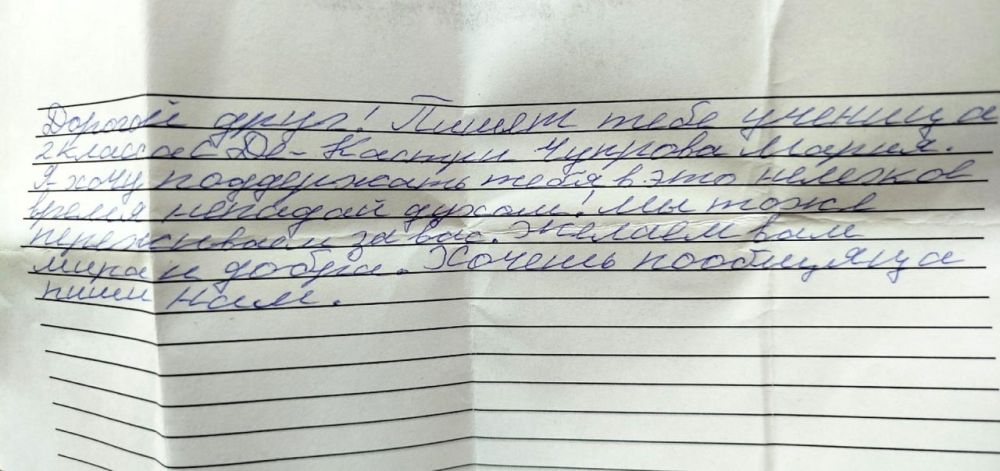 Дорогой друг! Пишет тебе ученица
2 класса с Де-Кастри Чупрова Мария.
Я хочу поддержать тебя в это нелегков
время непадай духом! Мы тоже
переживаем за вас. Желаем вам
мира и добра. Хочешь пообщяца
пиши нам.